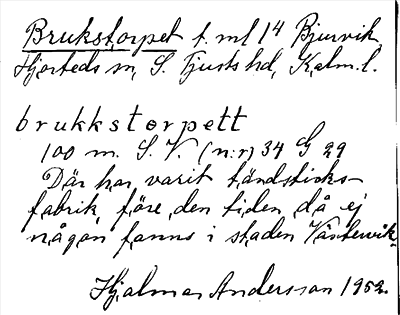 Brukstorpet t. ml 1⁴ Bjurvik
Hjorteds sn, S. Tjusts hd, Kalm. l.
brukkstorpett
100 m. S. V. (n:r) 34 G 29
Där har varit tändsticks-
fabrik före den tiden då ej
någon fanns i staden Västervik.
Hjalmar Andersson 1952.